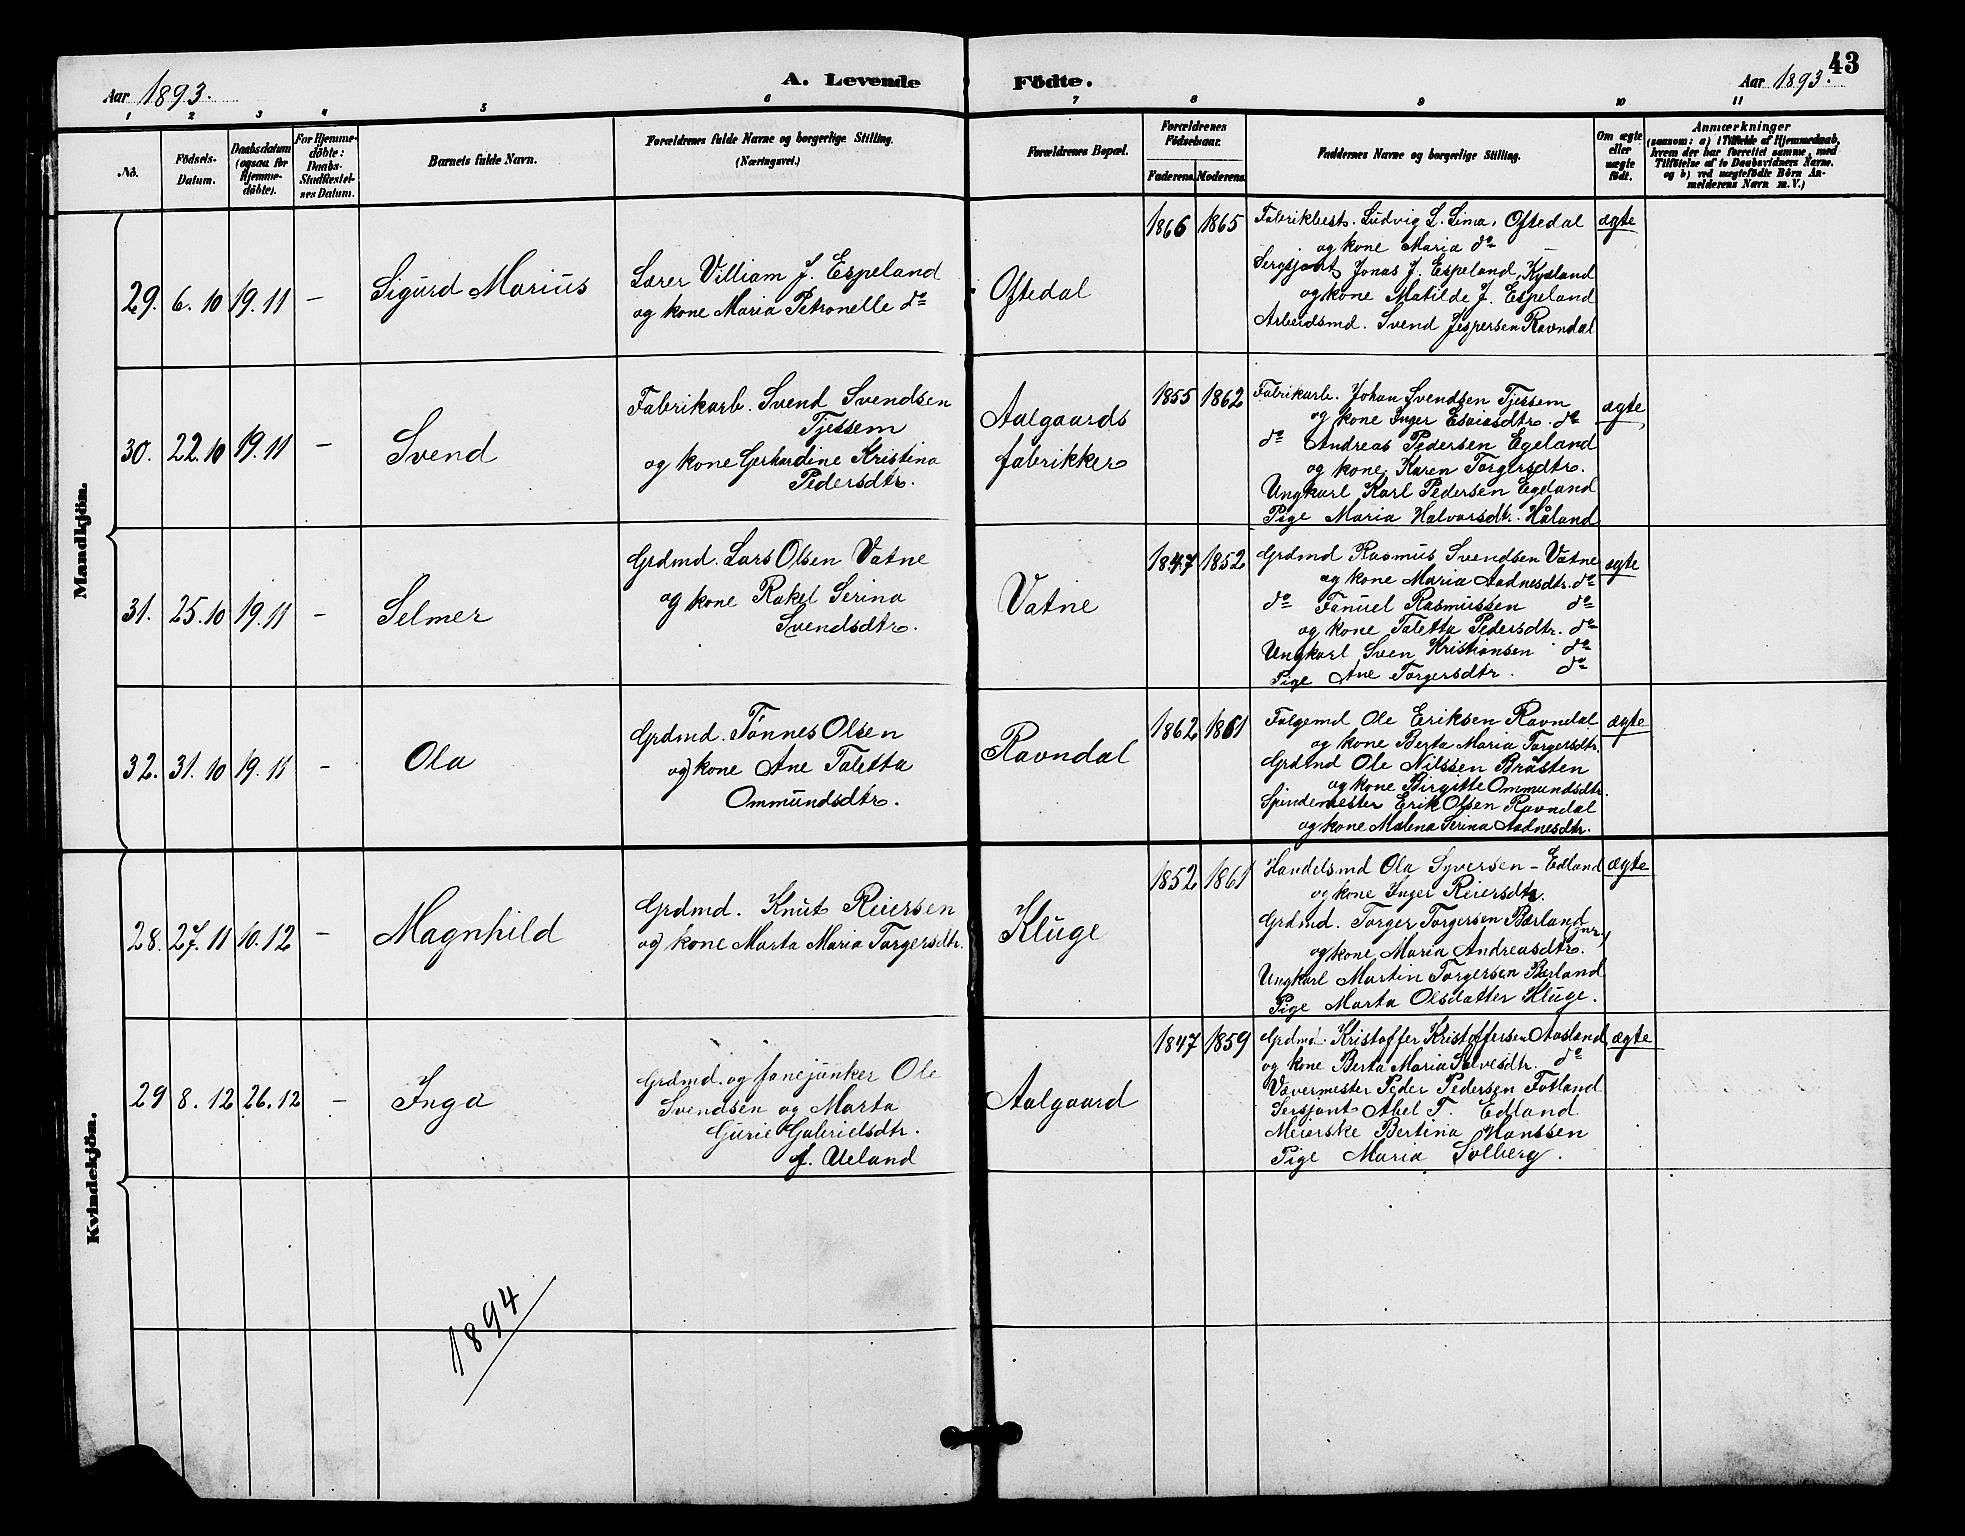 43
Aar 1893. A. Levende Födte. Aar 1893.
1 2 3 4 5 6 7 8 9 10 11
No. Födsels-Datum. Daabsdatum (ogsaa for Hjemme-döbte). For Hjemme-döbte: Daabs-Stadfæstel-ses Datum. Barnets fulde Navn. Forældrenes fulde Navne og borgerlige Stilling. (Næringsvei.) Forældrenes Bopæl. Forældrenes Födselsaar. Faderens Moderens. Faddernes Navne og borgerlige Stilling. Om ægte eller uægte födt. Anmærkninger (saasom: a) i Tilfælde af Hjemmedaab, hvem der har forrettet samme, med Tilföielse af to Daabsvidners Navne, og b) ved uægtefödte Börn An-melderens Navn m. V.)
Mandkjön.
29. 6. 10 19. 11 – Sigurd Marius
Lærer Villiam J. Espeland
og kone Maria Petronelle do
Oftedal
1866 1865
Fabrikbest. Ludvig L. Lima, Oftedal
og kone Maria do
Sergsjant Jonas J. Espeland, Kydland
og kone Matilde J. Espeland
Arbeidsmd. Svend Jespersen Ravndal
ægte
30. 22. 10 19. 11 – Svend
Fabrikarb. Svend Svendsen
Tjessem
og kone Gerhardine Kristina
Pedersdtr.
Aalgaards
fabrikker
1855 1862
Fabrikarb. Johan Svendsen Tjessem
og kone Inger Esaiasdtr. do
do Andreas Pedersen Egeland
og kone Karen Torgersdtr.
Ungkarl Karl Pedersen Egeland
Pige Maria Halvorsdtr. Håland
ægte
31. 25. 10 19. 11 – Selmer
Grdmd. Lars Olsen Vatne
og kone Rakel Serina
Svendsdtr.
Vatne
1847 1852
Grdmd Rasmus Svendsen Vatne
og kone Maria Aadnesdtr. do
do Fanuel Rasmussen do
og kone Taletta Pedersdtr. do
Ungkarl Sven Kristiansen do
Pige Ane Torgersdtr. do
ægte
32. 31. 10 19. 11 – Ola
Grdmd. Tønnes Olsen
og kone Ane Taletta
Ommundsdtr.
Ravndal
1862 1861
Folgemd Ole Eriksen Ravndal
og kone Berta Maria Torgersdtr.
Grdmd Ole Nilssen Bråsten
og kone Birgitte Ommundsdtr.
Spindemester Erik Olsen Ravndal
og kone Malena Serina Aadnesdtr.
ægte
Kvindekjön.
28. 27. 11 10. 12 – Magnhild
Grdmd. Knut Reiersen
og kone Marta Maria Torgersdtr.
Kluge
1852 1861
Handelsmd Ola Syversen – Edland
og kone Inger Reiersdtr.
Grdmd. Torger Torgersen Bærland
og kone Maria Andreasdtr.
Ungkarl Martin Torgersen Bærland
Pige Marta Olsdatter Kluge.
ægte
29 8. 12 26. 12 – Inga
Grdmd. og fanejunker Ole
Svendsen og Marta
Gurie Gabrielsdtr.
f. Ueland
Aalgaard
1847 1859
Grdmd. Kristoffer Kristoffersen Aasland
og kone Berta Maria Salvesdtr. do
Vævermester Peder Pedersen Fotland
Sersjant Abel T. Edland
Meierske Bertina Hanssen
Pige Maria Solberg.
ægte
1894